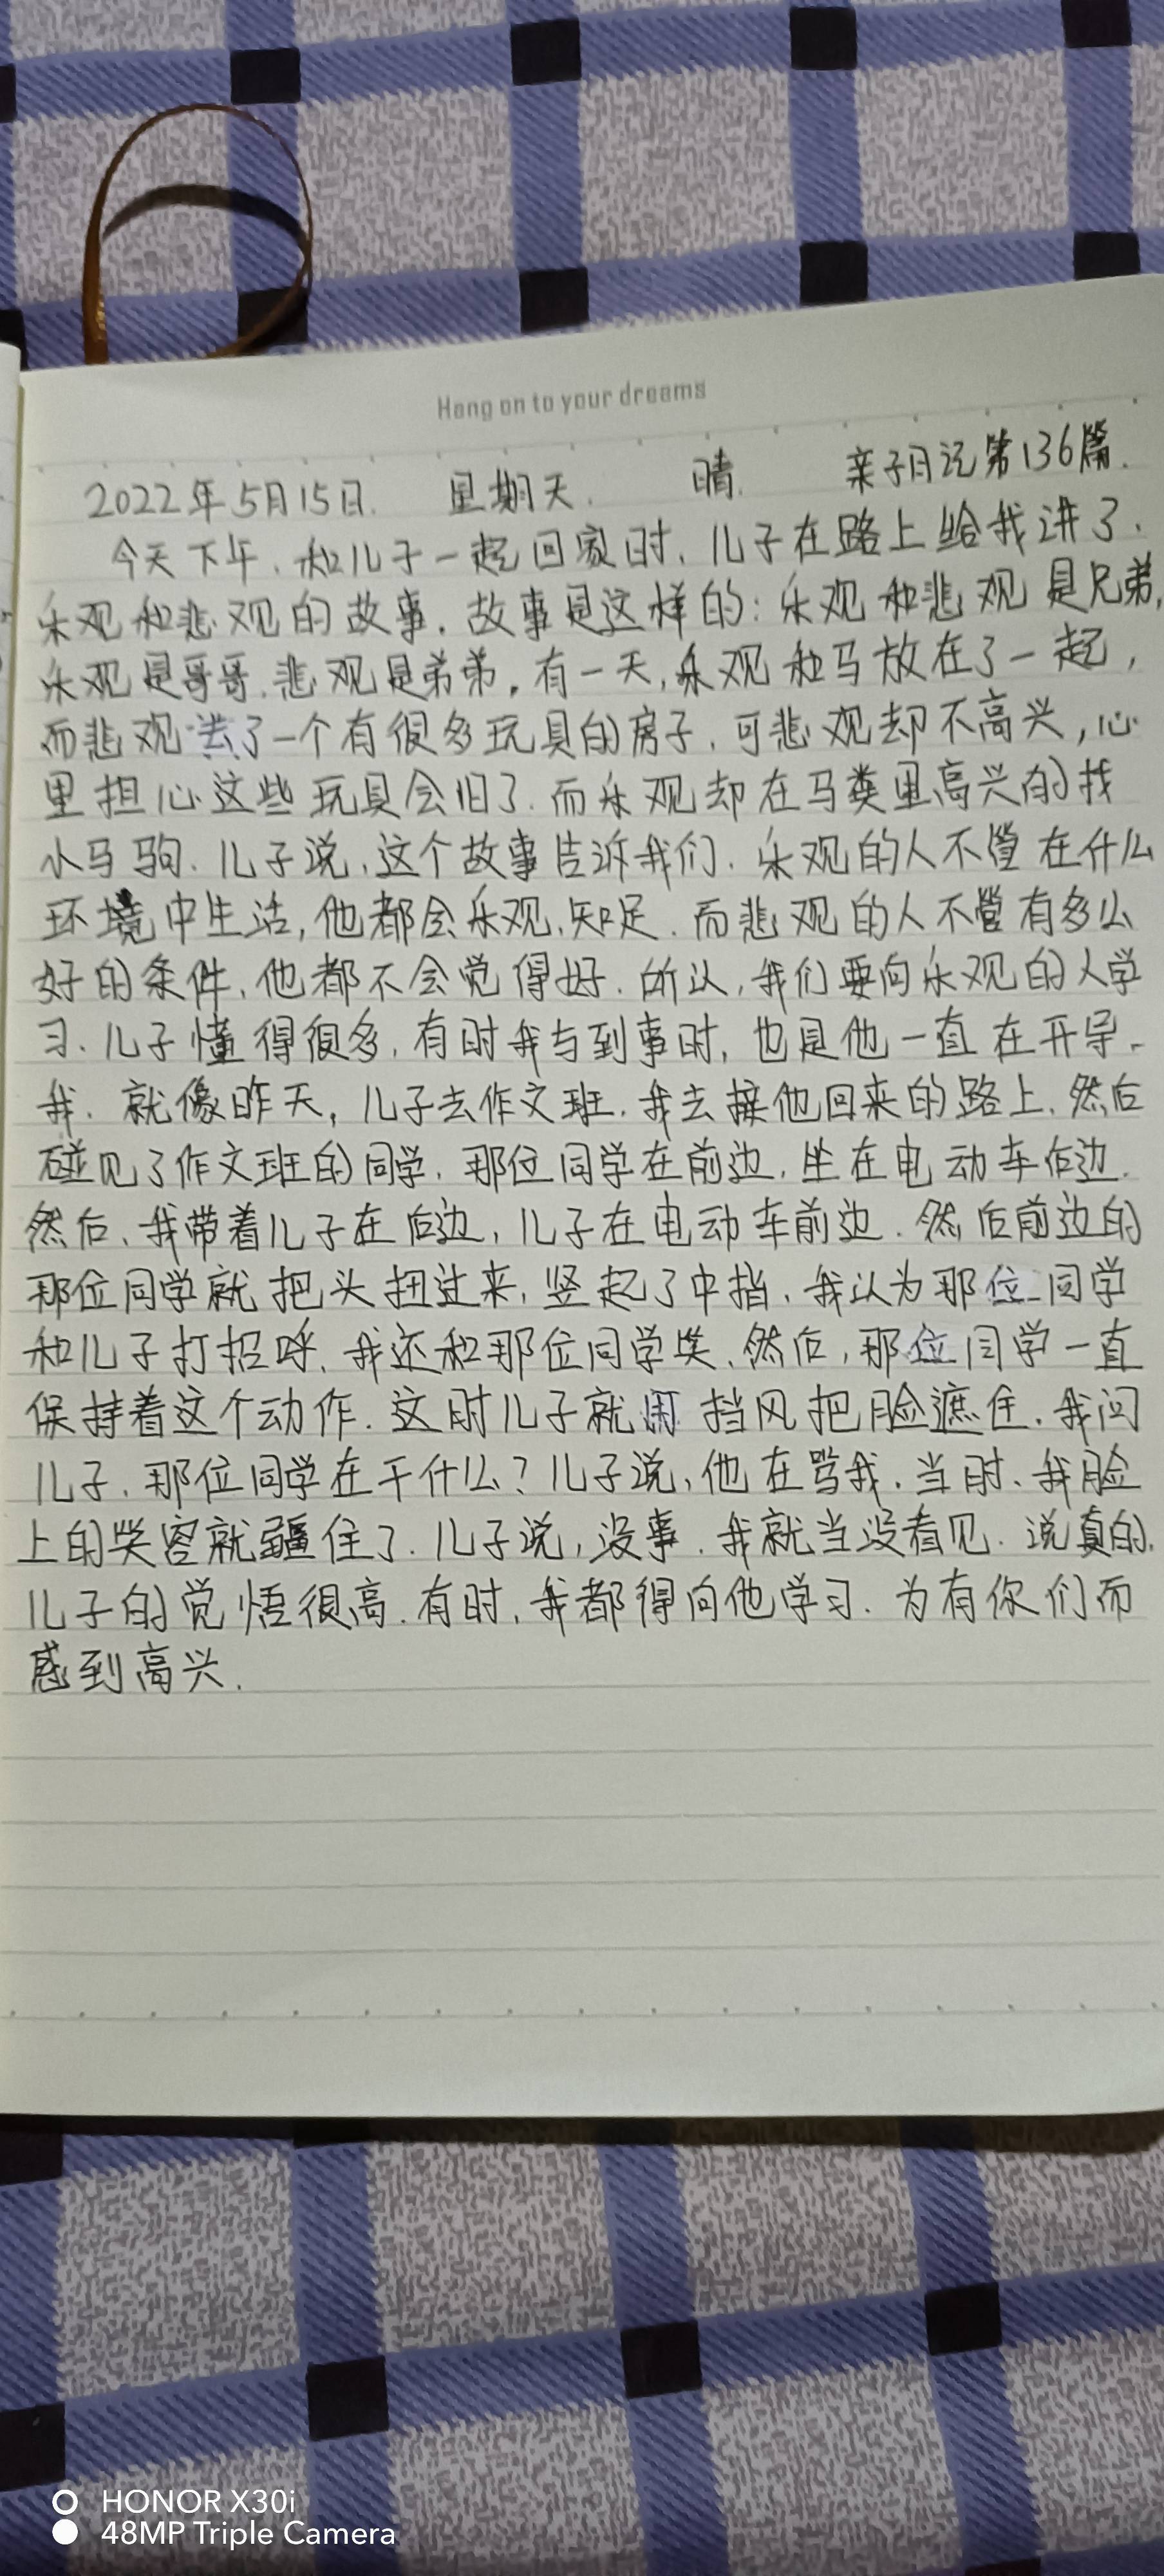 Hang on to your dreams
2022年5月15日. 星期天. 晴. 亲子日记第136篇.
今天下午,和儿子一起回家时,儿子在路上给我讲了.
乐观和悲观的故事.故事是这样的:乐观和悲观是兄弟,
乐观是哥哥,悲观是弟弟.有一天,乐观和马放在了一起,
而悲观去了一个有很多玩具的房子,可悲观却不高兴,心
里担心这些玩具会旧了.而乐观却在马粪里高兴的找
小马驹.儿子说,这个故事告诉我们.乐观的人不管在什么
环境中生活,他都会乐观、知足.而悲观的人不管有多么
好的条件,他都不会觉得好.所以,我们要向乐观的人学
习.儿子懂得很多,有时我与到事时,也是他一直在开导
我.就像昨天,儿子去作文班.我去接他回来的路上.然后
碰见了作文班的同学.那位同学在前边,坐在电动车后边.
然后、我带着儿子在后边,儿子在电动车前边.然后前边的
那位同学就把头扭过来,竖起了中指,我认为那位同学
和儿子打招呼.我还和那位同学笑.然后,那位同学一直
保持着这个动作.这时儿子就用挡风把脸遮住.我问
儿子,那位同学在干什么?儿子说,他在骂我.当时、我脸
上的笑容就疆住了.儿子说,没事.我就当没看见.说真的,
儿子的觉悟很高.有时,我都得向他学习.为有你们而
感到高兴.
HONOR X30i
48MP Triple Camera